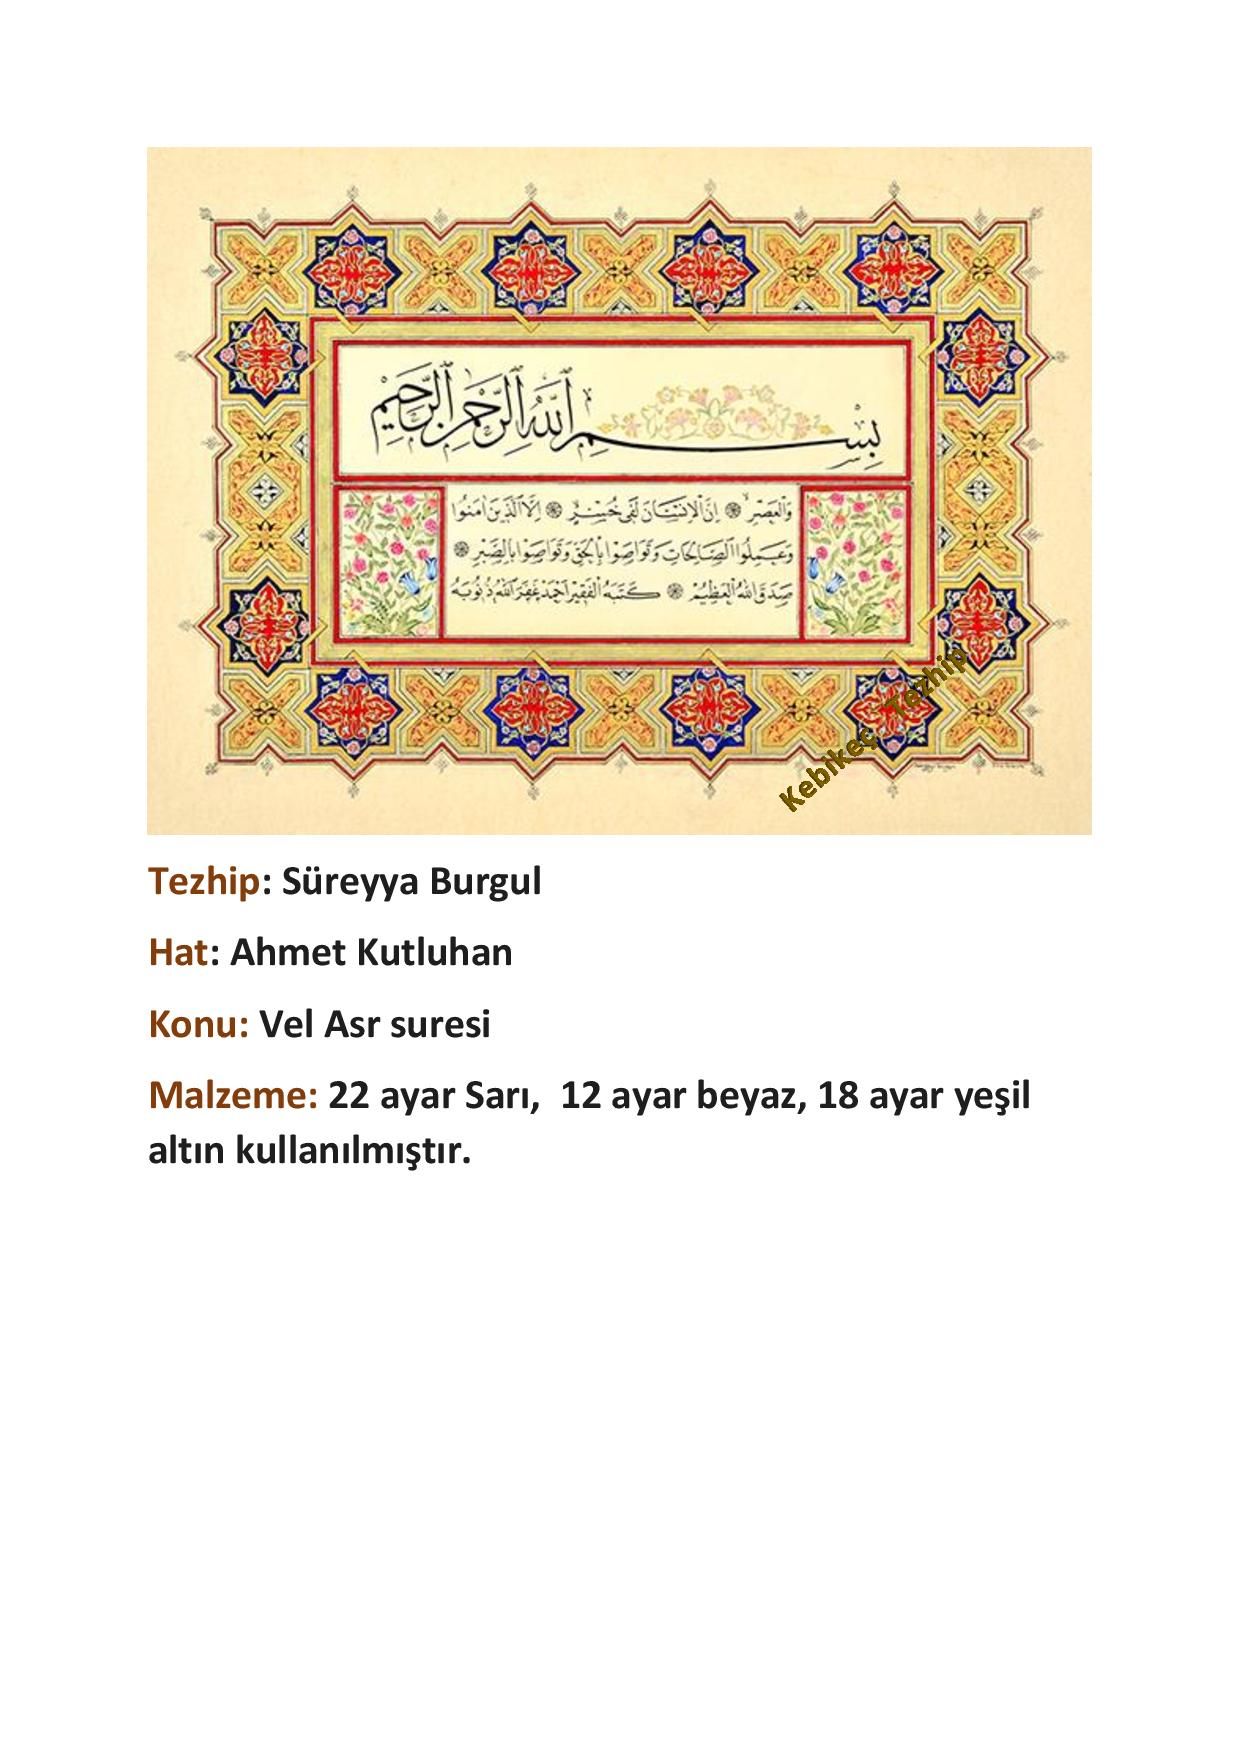 بِسْمِ اللّٰهِ الرَّحْمٰنِ الرَّحِيمِ
وَالْعَصْرِ ۞ اِنَّ الْاِنْسَانَ لَفٖى خُسْرٍ ۞ اِلَّا الَّذٖينَ اٰمَنُوا
وَعَمِلُوا الصَّالِحَاتِ وَتَوَاصَوْا بِالْحَقِّ وَتَوَاصَوْا بِالصَّبْرِ ۞
صَدَقَ اللّٰهُ الْعَظٖيمُ ۞ كَتَبَهُ الْفَقٖيرُ اَحْمَدْ غَفَرَ اللّٰهُ ذُنُوبَهُ
Kebikeç Tezhip
Tezhip: Süreyya Burgul
Hat: Ahmet Kutluhan
Konu: Vel Asr suresi
Malzeme: 22 ayar Sarı, 12 ayar beyaz, 18 ayar yeşil
altın kullanılmıştır.